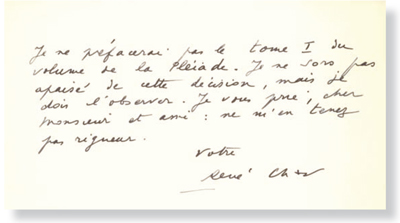 Je ne préfacerai pas le tome I du
volume de la Pléiade. Je ne sors pas
apaisé de cette décision, mais je
dois l'observer. Je vous prie, cher
monsieur et ami : ne m'en tenez
pas rigueur.
Votre
René Char